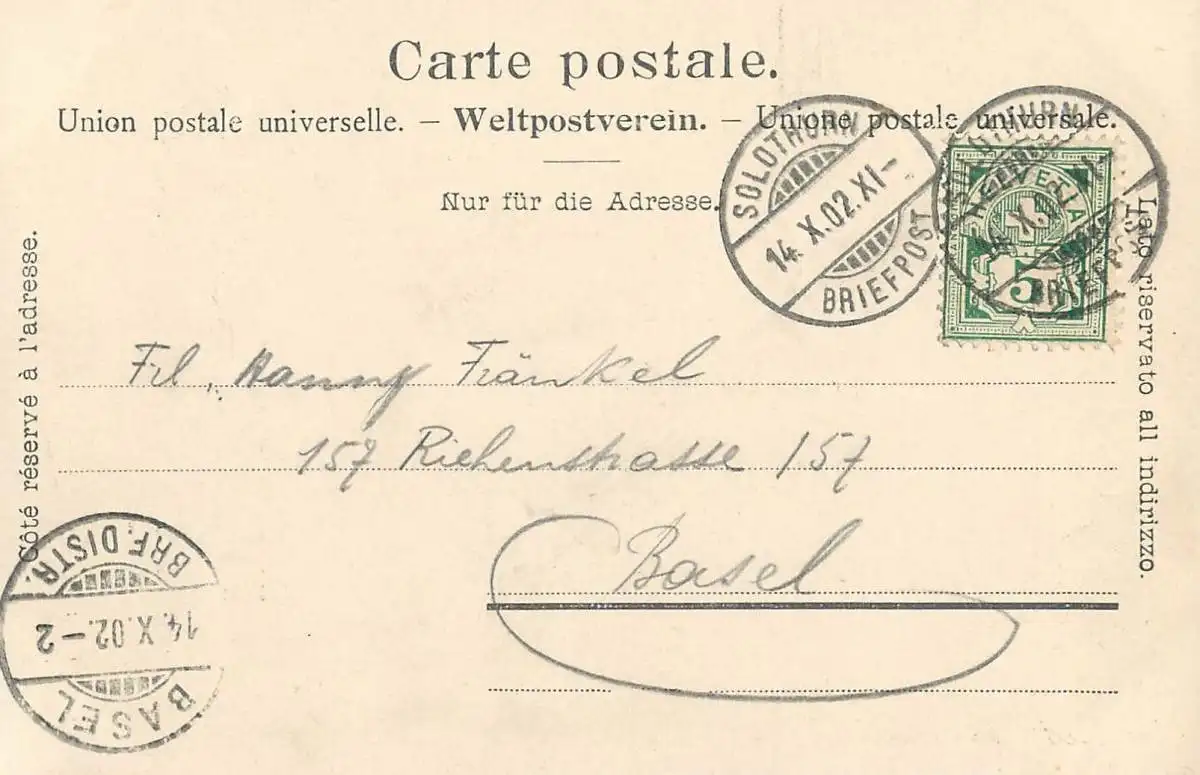 Carte postale.
Union postale universelle. – Weltpostverein. – Unione postale universale.
Nur für die Adresse.
SOLOTHURN
14. X. 02. XI–
BRIEFPOST
SOLOTHURN
14. X. 02. XI–
BRIEFPOST
HELVETIA
5
Côté réservé à l'adresse.
Lato riservato all indirizzo.
Frl. Hanny Fränkel
157 Riehenstrasse 157
Basel
BRF. DISTR.
14. X. 02.–2
BASEL